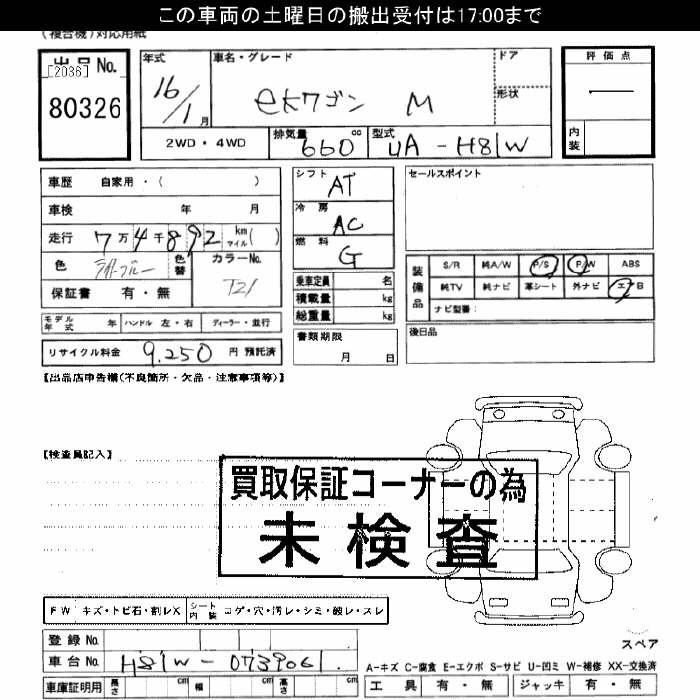 この車両の土曜日の搬出受付は17:00まで
(複合機)対応用紙
出品 No.
[2036]
80326
年式
16/1月
車名・グレード
eKワゴン M
ドア
形状
評価点
内装
2WD・4WD
排気量 660 cc
型式 UA-H81W
車歴 自家用・( )
車検 年 月
走行 7万4千892 km マイル( )
色 ライトブルー 色替 カラーNo. T21
保証書 有・無
モデル年式 年 ハンドル 左・右 ディーラー・並行
リサイクル料金 9,250 円 預託済
シフト AT
冷房 AC
燃料 G
乗車定員 名
積載量 kg
総重量 kg
書類期限
月 日
セールスポイント
装備品
S/R 純A/W P/S P/W ABS
純TV 純ナビ 革シート 外ナビ エアB
ナビ型番:
後日品
【出品店申告欄(不良箇所・欠品・注意事項等)】
【検査員記入】
買取保証コーナーの為
未検査
FW キズ・トビ石・割レX シート内装 コゲ・穴・汚レ・シミ・破レ・スレ
登録 No.
車台 No. H81W-0739061
車庫証明用 長さ cm 幅 cm 高さ cm
スペア
A-キズ C-腐食 E-エクボ S-サビ U-凹ミ W-補修 XX-交換済
工具 有・無 ジャッキ 有・無